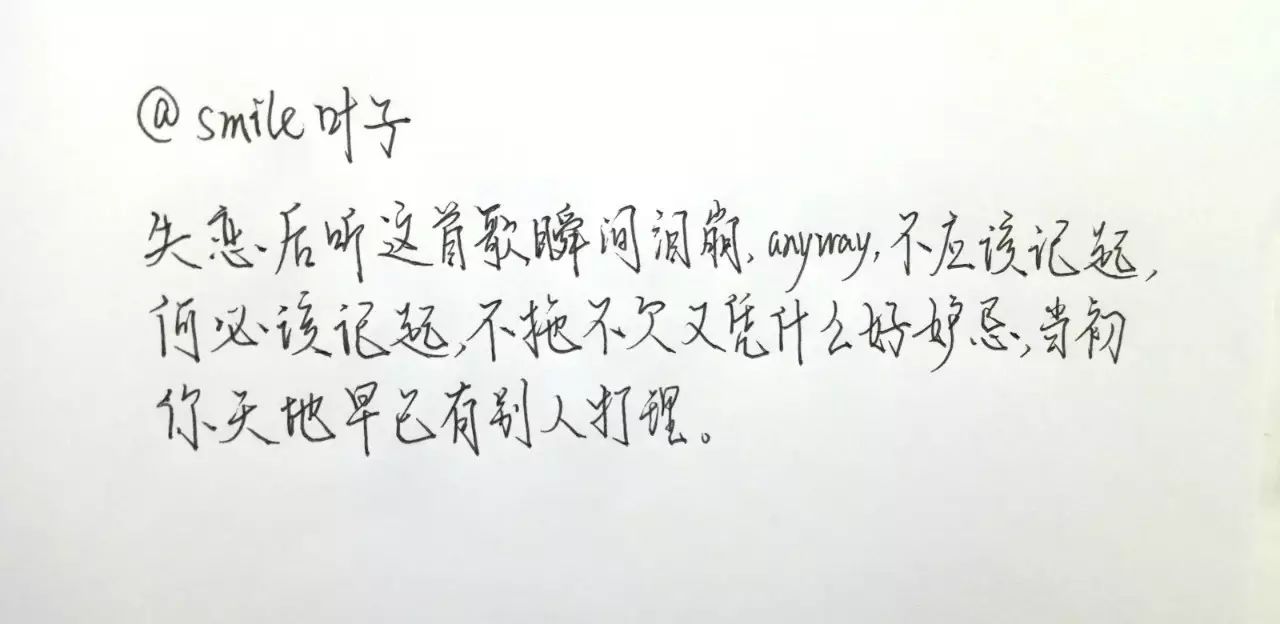 @smile叶子
失恋后听这首歌瞬间泪崩, anyway, 不应该记起,
何必该记起, 不拖不欠又凭什么好妒忌, 当初
你天地早已有别人打理。